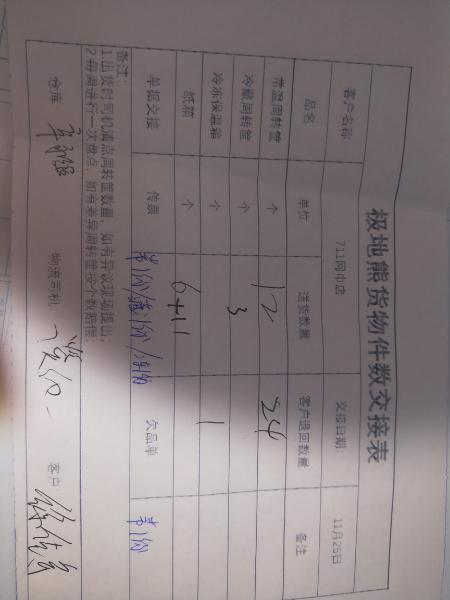 极地熊货物件数交接表
客户名称 711闵巾店 交接日期: 11月25日
品名 单位 送货数量 客户退回数量 备注
常温周转筐 个 12 24
冷藏周转筐 个 3
冷冻保温箱 个 1
纸箱 个 6+11
单据交接 传票 欠品单
备注:
1.出货时司机清点周转筐数量,如有异议现场提出;
2.每周进行一次盘点,如有差异周转筐按个数赔偿;
仓库: 物流司机: 客户: